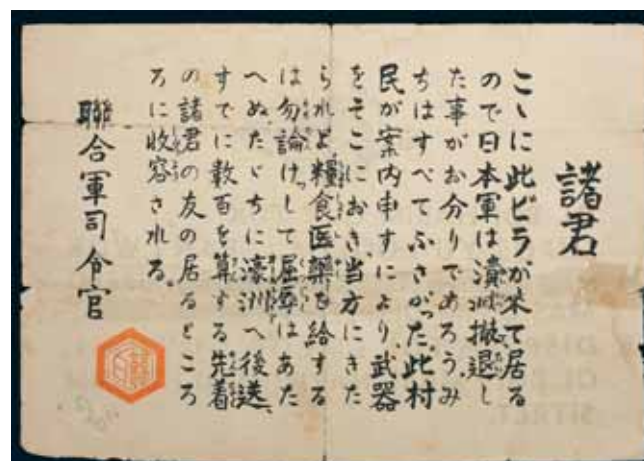 諸君
こゝに此ビラが来て居る
ので日本軍は潰滅撤退し
た事がお分りであろう、み
ちはすべてふさがった、此村
民が案内申すにより、武器
をそこにおき、当方にきた
られよ糧食医薬を給する
は勿論けっして屈辱はあた
へぬ、たゞちに濠洲へ後送、
すでに数百を算する先着
の諸君の友の居るところ
ろに收容される。
聯合軍司令官